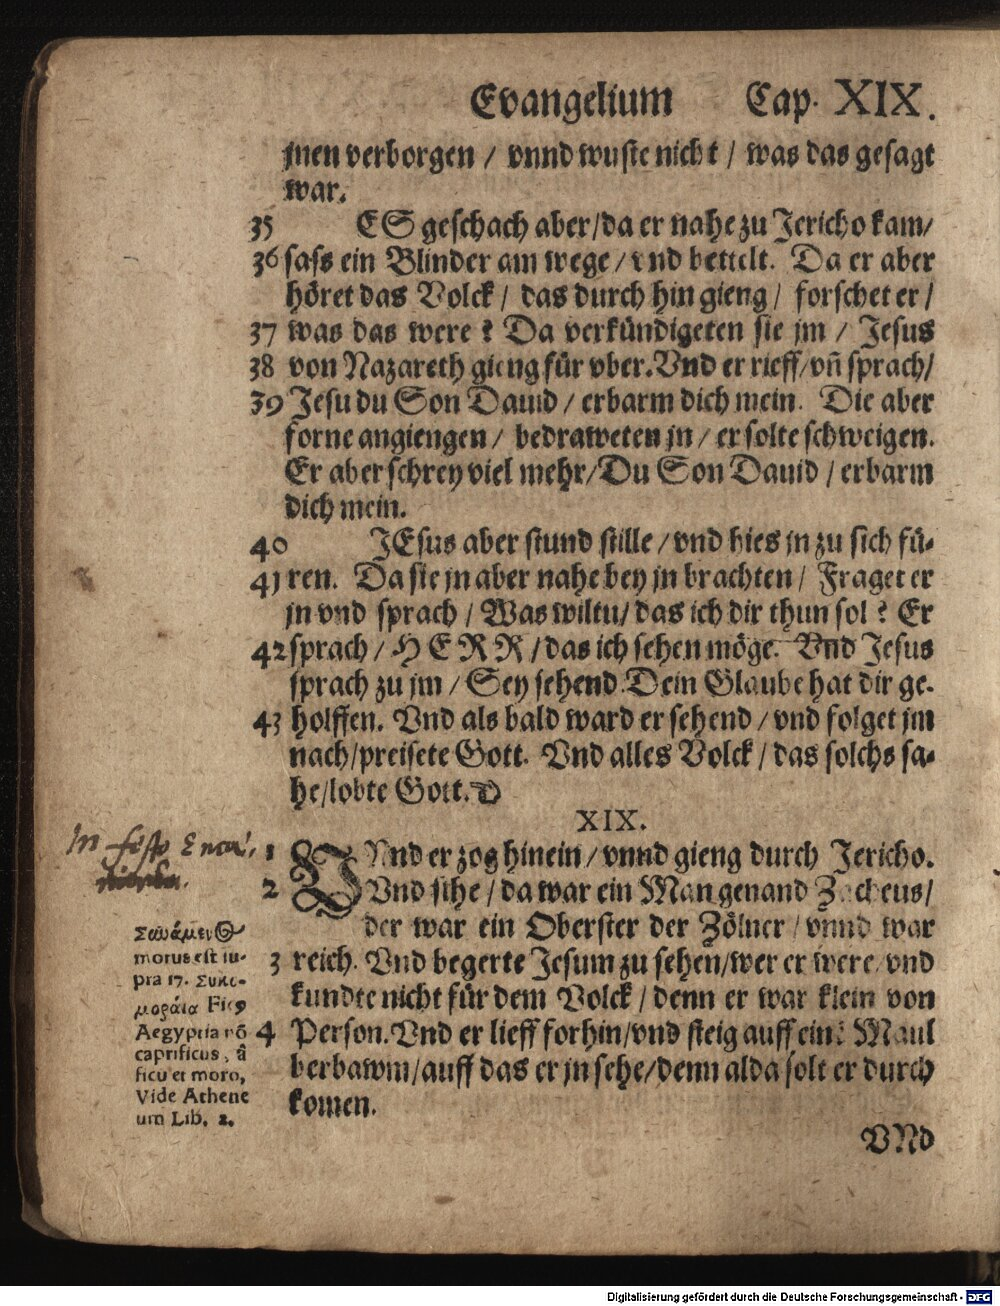 Evangelium Cap. XIX.
jnen verborgen / vnnd wuste nicht / was das gesagt
war.
35 ES geschach aber/da er nahe zu Jericho kam/
36 sass ein Blinder am wege / vnd bettelt. Da er aber
höret das Volck / das durch hin gieng / forschet er /
37 was das were ? Da verkündigeten sie jm / Jesus
38 von Nazareth gieng für vber.Vnd er rieff/vn̄ sprach/
39 Jesu du Son Dauid / erbarm dich mein. Die aber
forne angiengen / bedraweten jn / er solte schweigen.
Er aber schrey viel mehr/Du Son Dauid / erbarm
dich mein.
40 JEsus aber stund stille / vnd hies jn zu sich fü-
41 ren. Da sie jn aber nahe bey jn brachten / Fraget er
jn vnd sprach / Was wiltu/ das ich dir thun sol ? Er
42 sprach / HERR / das ich sehen möge. Vnd Jesus
sprach zu jm / Sey sehend.Dein Glaube hat dir ge-
43 holffen. Vnd als bald ward er sehend / vnd folget jm
nach/preisete Gott. Vnd alles Volck / das solchs sa-
he/lobte Gott.
XIX.
In festo Encæ,
1 VNnd er zog hinein / vnnd gieng durch Jericho.
2 Vnd sihe / da war ein Man genand Zacheus/
der war ein Oberster der Zölner / vnnd war
3 reich. Vnd begerte Jesum zu sehen/wer er were/vnd
kundte nicht für dem Volck / denn er war klein von
4 Person.Vnd er lieff forhin/vnd steig auff einē Maul
berbawm/auff das er jn sehe/denn alda solt er durch
komen.
morus est su-
pra 17. Συκο-
μοραία Ficꝰ
Aegyptia nō
caprificus, à
ficu et moro,
Vide Athene
um Lib. 2.
VNd
Digitalisierung gefördert durch die Deutsche Forschungsgemeinschaft - DFG